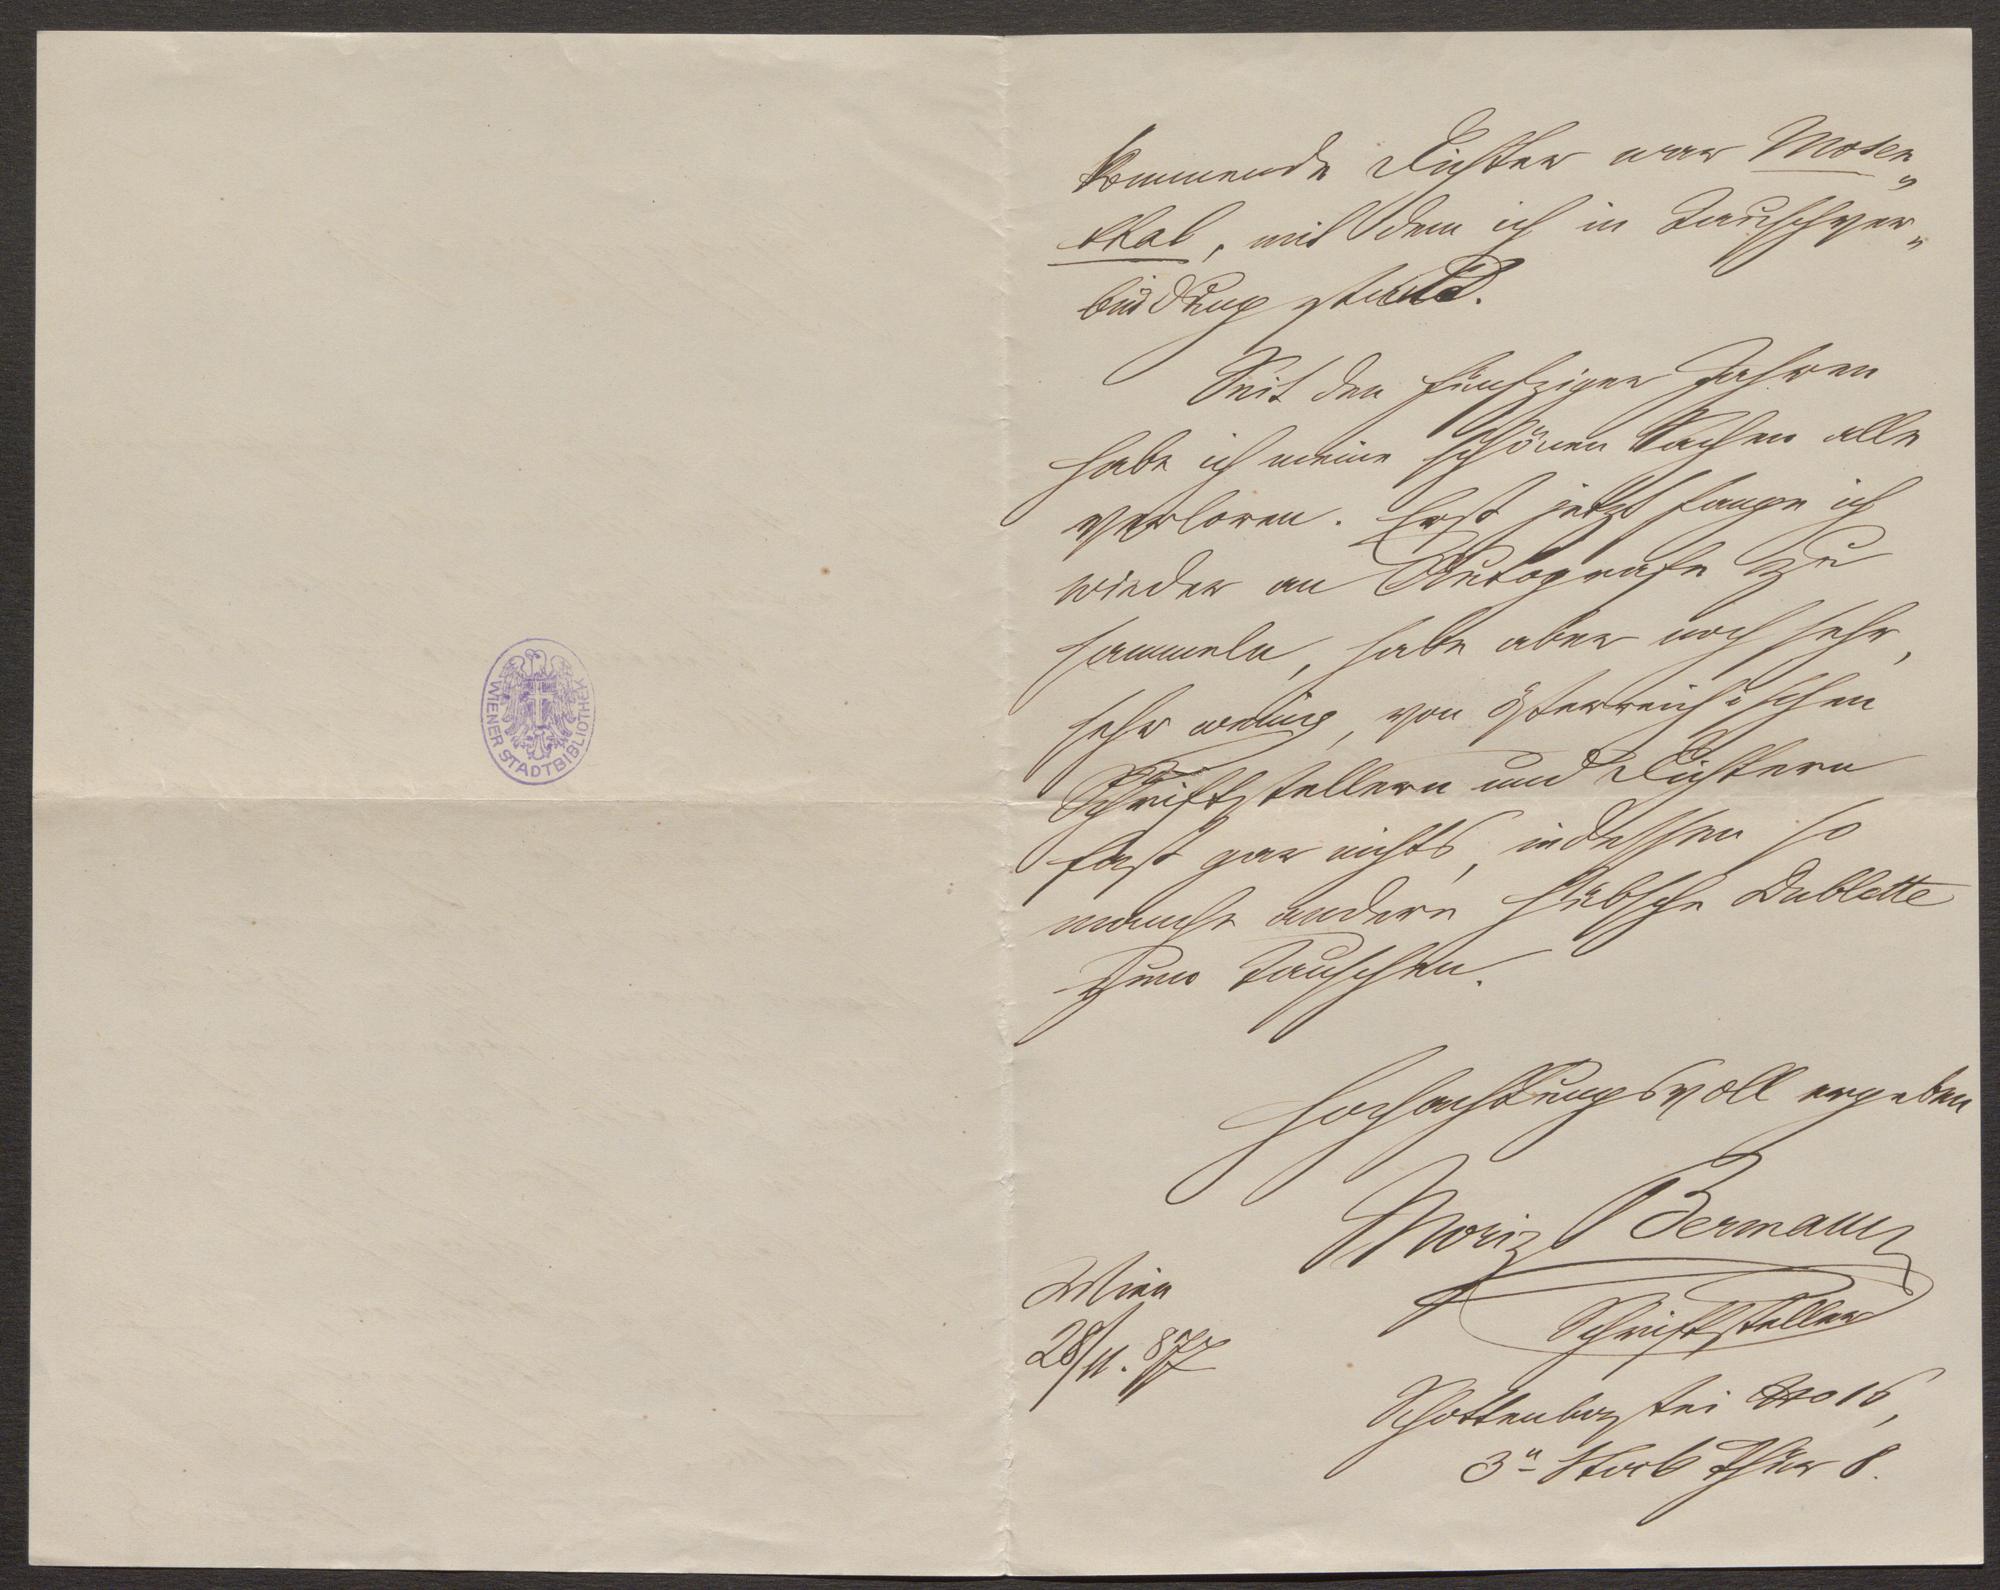 WIENER STADTBIBLIOTHEK
kommende Dichter war Mosen„
thal, mit dem ich in Tauschver„
bindung stand.
Seit den fünfziger Jahren
habe ich meine schönen Sachen alle
verloren. Erst jetzt fange ich
wieder an Autografe zu
sammeln, habe aber noch sehr,
sehr wenig, von österreichischen
Schriftstellern und Dichtern
fast gar nichts, indessen so
manche andere hübsche Dublette
zum Tauschen.
Hochachtungsvoll ergeben
Moriz Bermann
Schriftsteller
Wien
28/11. 877
Schottenbastei No 16,
3ter Stock Thür 8.